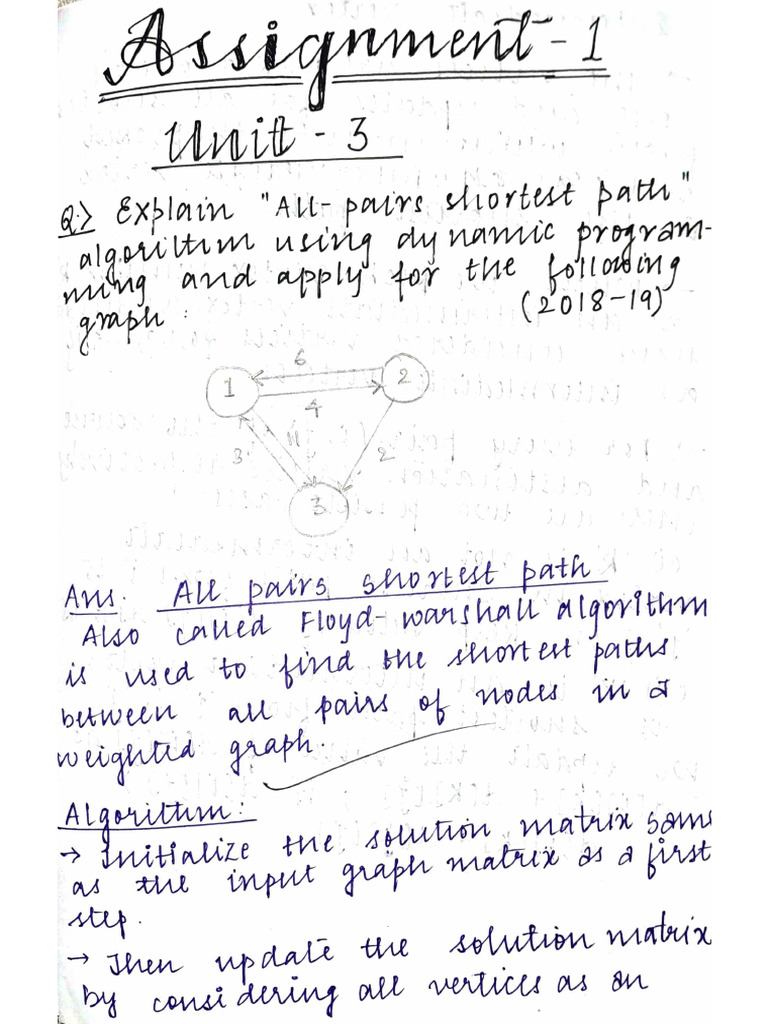 Assignment - 1
Unit - 3
Q.> Explain "All-pairs shortest path"
algorithm using dynamic program-
ming and apply for the following
graph : (2018-19)
6
1
2
4
11
3
2
3
Ans. All pairs shortest path
Also called Floyd-warshall algorithm
is used to find the shortest paths
between all pairs of nodes in a
weighted graph.
Algorithm:
→ Initialize the solution matrix same
as the input graph matrix as a first
step.
→ Then update the solution matrix
by considering all vertices as an